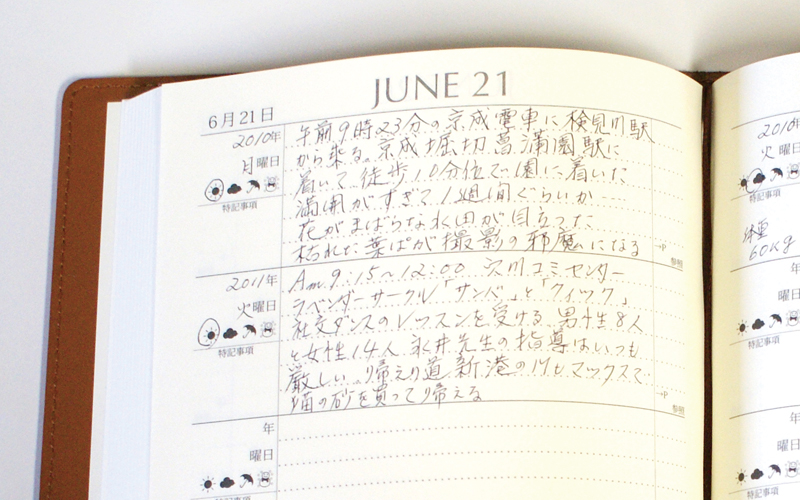 JUNE 21
6月21日
2010年
月曜日
特記事項
午前9時23分の京成電車に検見川駅
から来る。京成堀切菖蒲園駅に
着いて、徒歩10分位で園に着いた
満開がすぎて1週間ぐらいか…
花がまばらな水田が目立った
枯れた葉ぱが撮影の邪魔になる
→P
参照
2011年
火曜日
特記事項
Am 9:15〜12:00 穴川コミセンター
ラベンダーサークル「サンバ」と「クイック」
社交ダンスのレッスンを受ける 男性8人
と女性14人 永井先生の指導はいつも
厳しい。帰えり道 新港のケヒマックスで
猫の砂を買って帰える
→P
参照
年
曜日
特記事項
2010年
火 曜日
特記事項
体重
60Kg
年
曜日
特記事項
年
曜日
特記事項